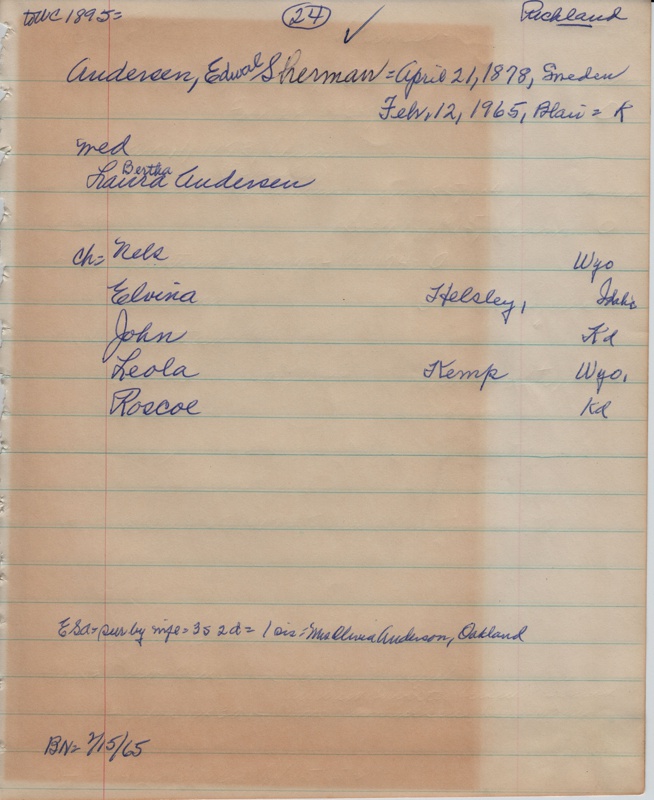 to WC 1895= 24 ✓ Richland
Andersen, Edwal Sherman = April 21, 1878, Sweden
Febr. 12, 1965, Blair = K
med
Bertha
Laura Andersen
ch= Nels Wyo
Elvina Helsley, Idaho
John Kd
Leola Kemp Wyo.
Roscoe Kd
ESA= sur by wife = 3s 2d = 1 sis = Mrs Anderson, Oakland
BN= 2/15/65